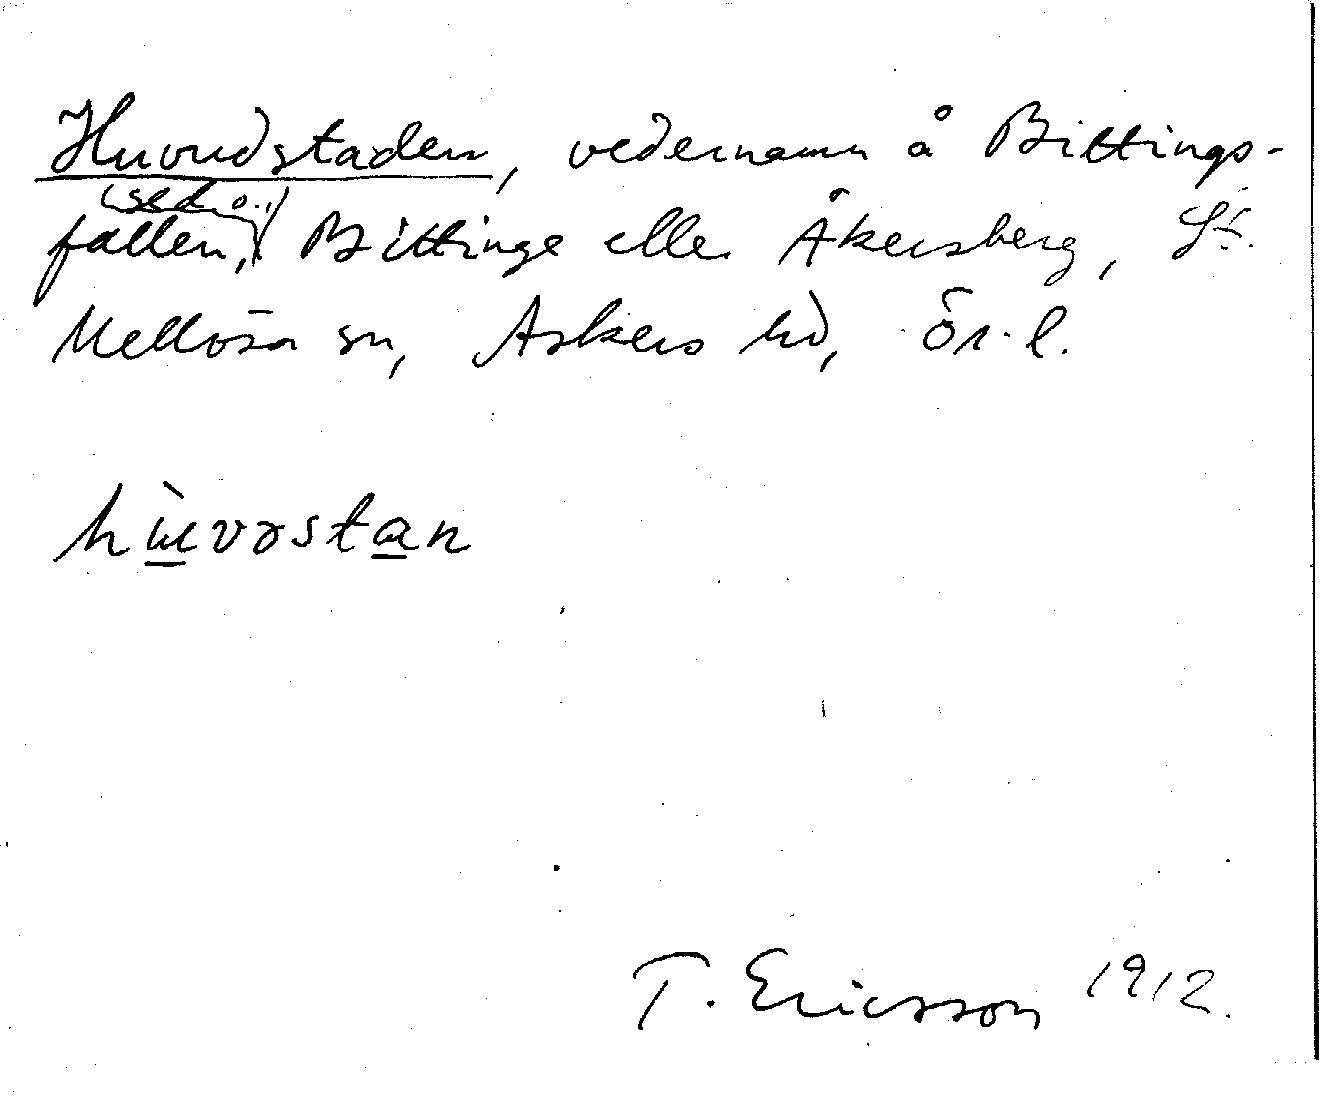 Huvudstaden, vedernamn å Bittings-
(se d. o.)
fallen, Bittinge elle. Åkersberg, St.
Mellösa sn, Askers hd, Ör. l.
hùvəstan
T. Ericsson 1912.